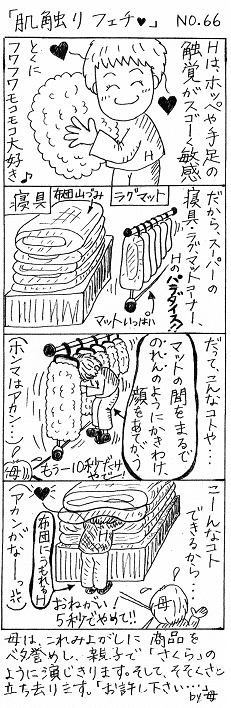 「肌触りフェチ♥」 NO.66
Hは、ホッペや手足の
触覚がスゴーく敏感
とくに
フワフワモコモコ大好き♪
H
だから、スーパーの
寝具・ラグマットコーナー、
Hのパラダイス!
ラグマット
マットいっぱい
寝具
布団山づみ
だって、こんなコトや…
マットの間をまるで
のれんのようにかきわけ、
頭をあてがい、
(ホンマはアカン…)
母
もうー10秒だけ
やでー
こーんなコト
できるから…
布団にうもれるH
H
(アカンがなーっ)
おねがい!
5秒でやめて!!
母
母は、これみよがしに商品を
ベタ誉めし、親子で「さくら」の
ように演じきります。そして、そそくさと
立ち去ります。「お許し下さい…」
by母